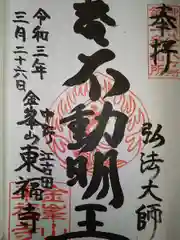 奉拝
弘法大師
不動明王
令和三年
三月二十六日
中野 江古田
金峯山 東福寺